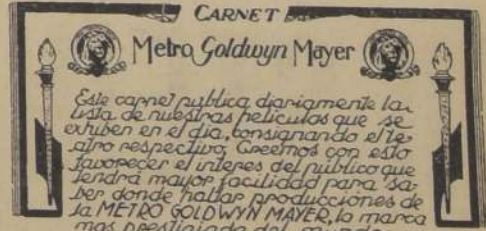 CARNET
Metro Goldwyn Mayer
Este carnet publica diariamente la
lista de nuestras peliculas que se
exhiben en el dia, consignando el te-
atro respectivo, Creemos con esto
favorecer el interes del publico que
tendrá mayor facilidad para sa-
ber donde hallar producciones de
la METRO GOLDWYN MAYER, la marca
mas prestigiada del mundo